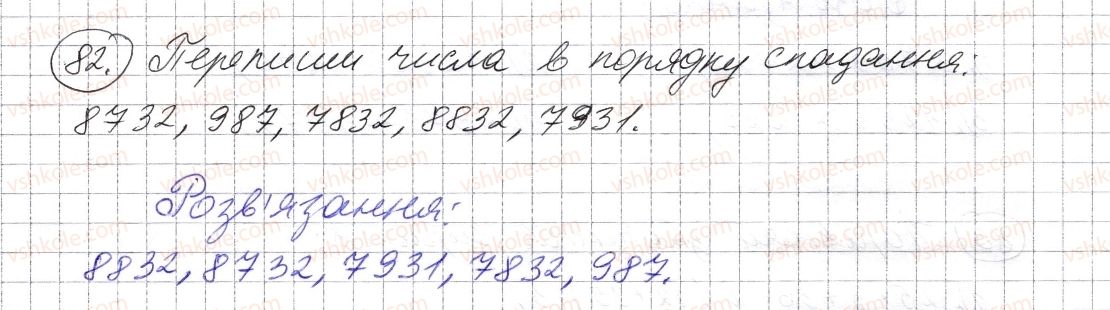 82. Перепиши числа в порядку спадання:
8732, 987, 7832, 8832, 7931.
Розв'язання:
8832, 8732, 7931, 7832, 987.